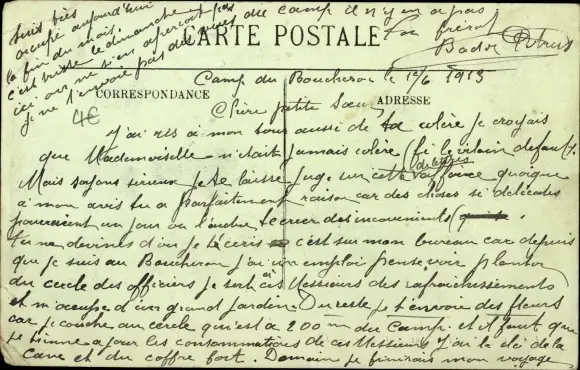 Suis très
occupé aujourd'hui
la fin du mois.
c'est triste le dimanche
ici on ne s'en aperçoit pas
je ne t'envoie pas de vues du camp il n'y en a pas
Ton frère
CARTE POSTALE
Camp du Boucheron le 1915
CORRESPONDANCE
ADRESSE
Chère petite Sœur
4€
J'ai ris à mon tour aussi de ta colère je croyais
que Mademoiselle n'était jamais colère (Fi le vilain defaut).
Mais soyons sérieux je te laisse juge sur cette quoique
à mon avis tu a parfaitement raison car des choses si délicates
pourraient un jour ou l'autre te créer des inconvénients
tu ne devines d'où je t'écris c'est sur mon bureau car depuis
que je suis au Boucheron j'ai un emploi pense voir planton
du cercle des officiers je sert à Messieurs des rafraichissements
et m'occupe d'un grand jardin. Du reste je t'envoie des fleurs
car je couche au cercle qu'est à 200 m du Camp. et il faut que
je tienne a jour les consommations de ces Messieurs j'ai la clé de la
cave et du coffre fort. Demain je finirais mon voyage